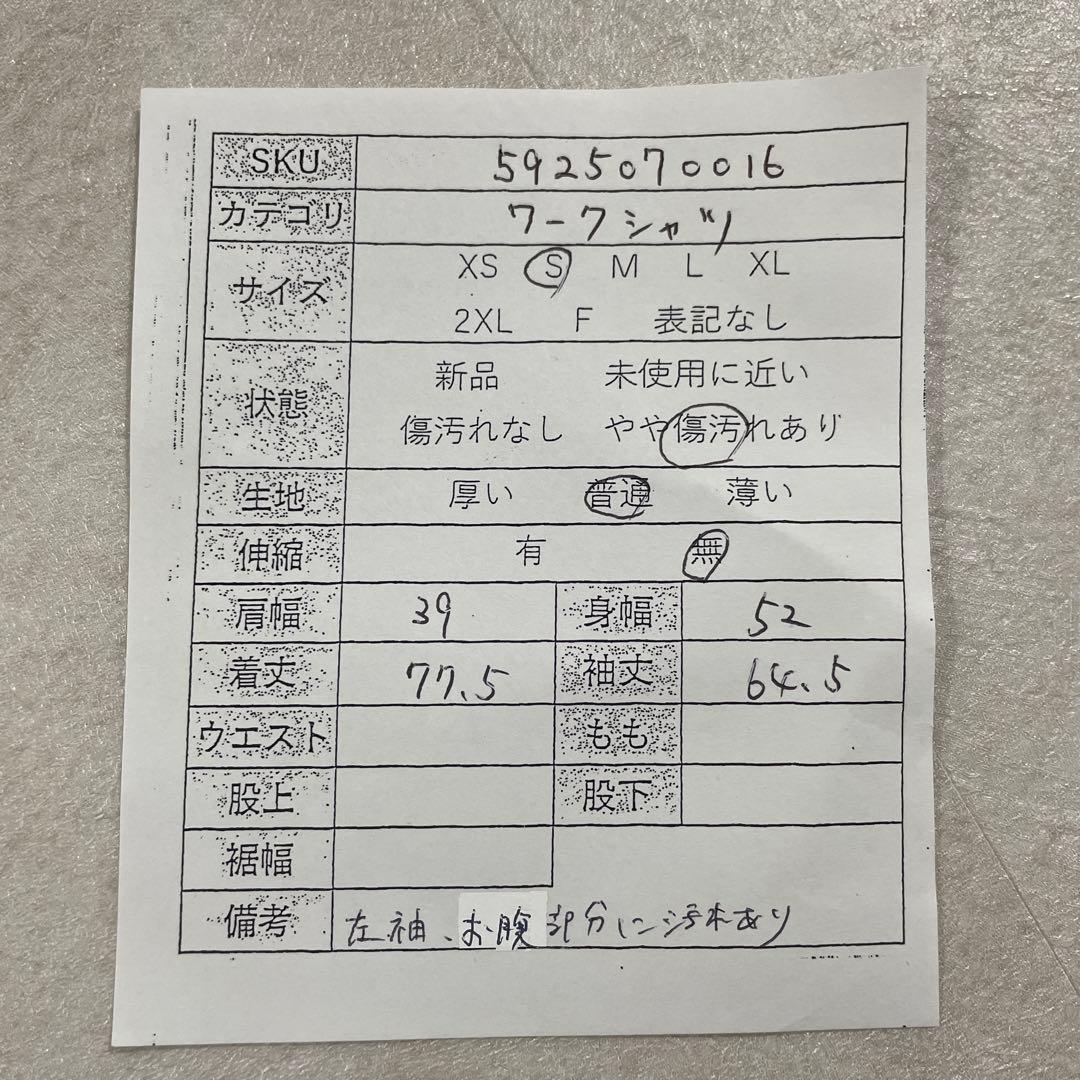 SKU 5925070016
カテゴリ ワークシャツ
サイズ XS S M L XL
2XL F 表記なし
状態 新品 未使用に近い
傷汚れなし やや傷汚れあり
生地 厚い 普通 薄い
伸縮 有 無
肩幅 39 身幅 52
着丈 77.5 袖丈 64.5
ウエスト もも
股上 股下
裾幅
備考 左袖、お腹部分に汚れあり